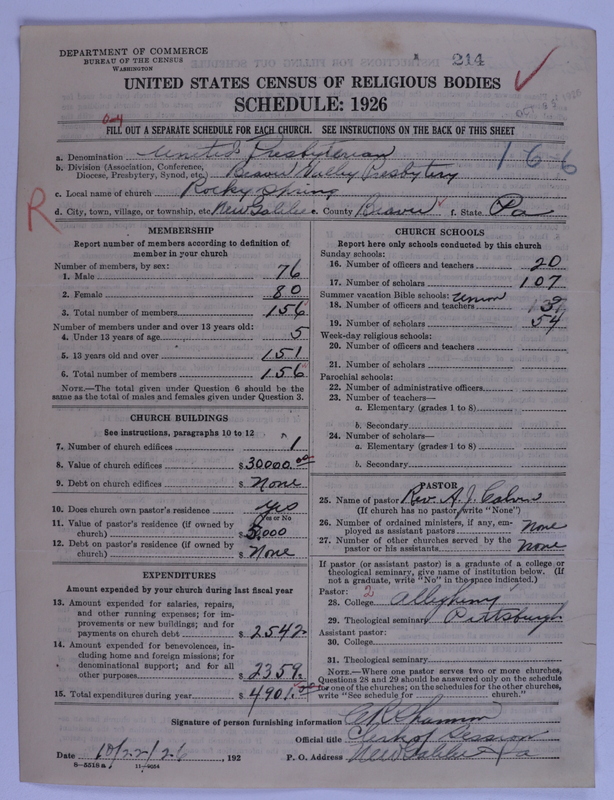 DEPARTMENT OF COMMERCE
BUREAU OF THE CENSUS
WASHINGTON
214
UNITED STATES CENSUS OF RELIGIOUS BODIES
SCHEDULE: 1926
FILL OUT A SEPARATE SCHEDULE FOR EACH CHURCH. SEE INSTRUCTIONS ON THE BACK OF THIS SHEET
a. Denomination United Presbyterian
166
b. Division (Association, Conference, Diocese, Presbytery, Synod, etc.) Beaver Valley Presbytery
c. Local name of church Rocky Spring
R
d. City, town, village, or township, etc. New Galilee e. County Beaver f. State Pa
MEMBERSHIP
Report number of members according to definition of
member in your church
Number of members, by sex:
1. Male 76
2. Female 80
3. Total number of members 156
Number of members under and over 13 years old:
4. Under 13 years of age 5
5. 13 years old and over 151
6. Total number of members 156
NOTE.—The total given under Question 6 should be the
same as the total of males and females given under Question 3.
CHURCH BUILDINGS
See instructions, paragraphs 10 to 12
7. Number of church edifices 1
8. Value of church edifices $30000.00
9. Debt on church edifices $ None
10. Does church own pastor's residence? yes
Yes or No
11. Value of pastor's residence (if owned by
church) $5,000
12. Debt on pastor's residence (if owned by
church) $ None
EXPENDITURES
Amount expended by your church during last fiscal year
13. Amount expended for salaries, repairs,
and other running expenses; for im-
provements or new buildings; and for
payments on church debt $2542.
14. Amount expended for benevolences, in-
cluding home and foreign missions; for
denominational support; and for all
other purposes $2359.
15. Total expenditures during year $4901.00
CHURCH SCHOOLS
Report here only schools conducted by this church
Sunday schools:
16. Number of officers and teachers 20
17. Number of scholars 107
Summer vacation Bible schools: Union
18. Number of officers and teachers
19. Number of scholars 54
Week-day religious schools:
20. Number of officers and teachers
21. Number of scholars
Parochial schools:
22. Number of administrative officers
23. Number of teachers—
a. Elementary (grades 1 to 8)
b. Secondary
24. Number of scholars—
a. Elementary (grades 1 to 8)
b. Secondary
PASTOR
25. Name of pastor Rev. A. J. Calvin
(If church has no pastor, write "None")
26. Number of ordained ministers, if any, em-
ployed as assistant pastors None
27. Number of other churches served by the
pastor or his assistants None
If pastor (or assistant pastor) is a graduate of a college or
theological seminary, give name of institution below. (If
not a graduate, write "No" in the space indicated.)
Pastor:
28. College 2 Allegheny
29. Theological seminary Pittsburgh
Assistant pastor:
30. College
31. Theological seminary
NOTE.—Where one pastor serves two or more churches,
Questions 28 and 29 should be answered only on the schedule
for one of the churches; on the schedules for the other churches,
write "See schedule for church."
Signature of person furnishing information Shannon
Official title Clerk of Session
Date 10/22/26, 192
P. O. Address New Galilee Pa
8-5518a 11-9054